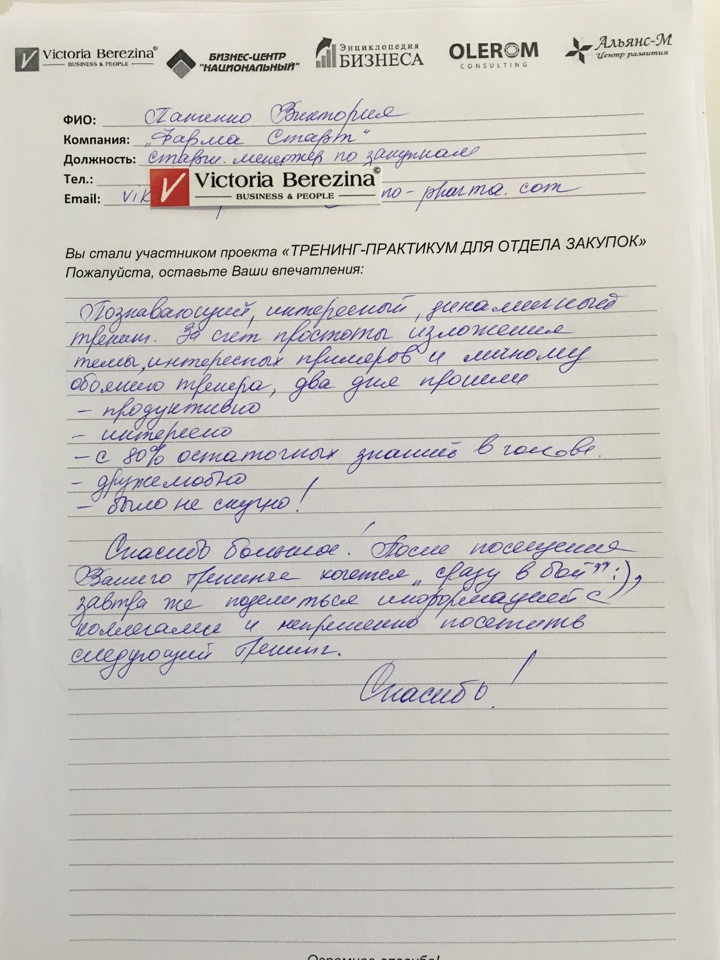 Victoria Berezina©
BUSINESS & PEOPLE
БИЗНЕС-ЦЕНТР
"НАЦИОНАЛЬНЫЙ"
Энциклопедия
БИЗНЕСА
OLEROM
CONSULTING
Альянс-М
Центр развития
ФИО: Виктория
Компания: „Фарма Старт"
Должность: старш. менеджер по закупкам
Тел.:
Victoria Berezina©
BUSINESS & PEOPLE
Email: vik no-pharma.com
Вы стали участником проекта «ТРЕНИНГ-ПРАКТИКУМ ДЛЯ ОТДЕЛА ЗАКУПОК»
Пожалуйста, оставьте Ваши впечатления:
Познавающий, интересный, динамичный
тренинг. За счёт простоты изложения
темы, интересных примеров и личному
обаянию тренера, два дня прошли
- продуктивно
- интересно
- с 80% остаточных знаний в голове.
- дружелюбно
- было не скучно!
Спасибо большое! После посещения
Вашего тренинга хочется „сразу в бой" :),
завтра же поделиться информацией с
коллегами и непременно посетить
следующий тренинг.
Спасибо!